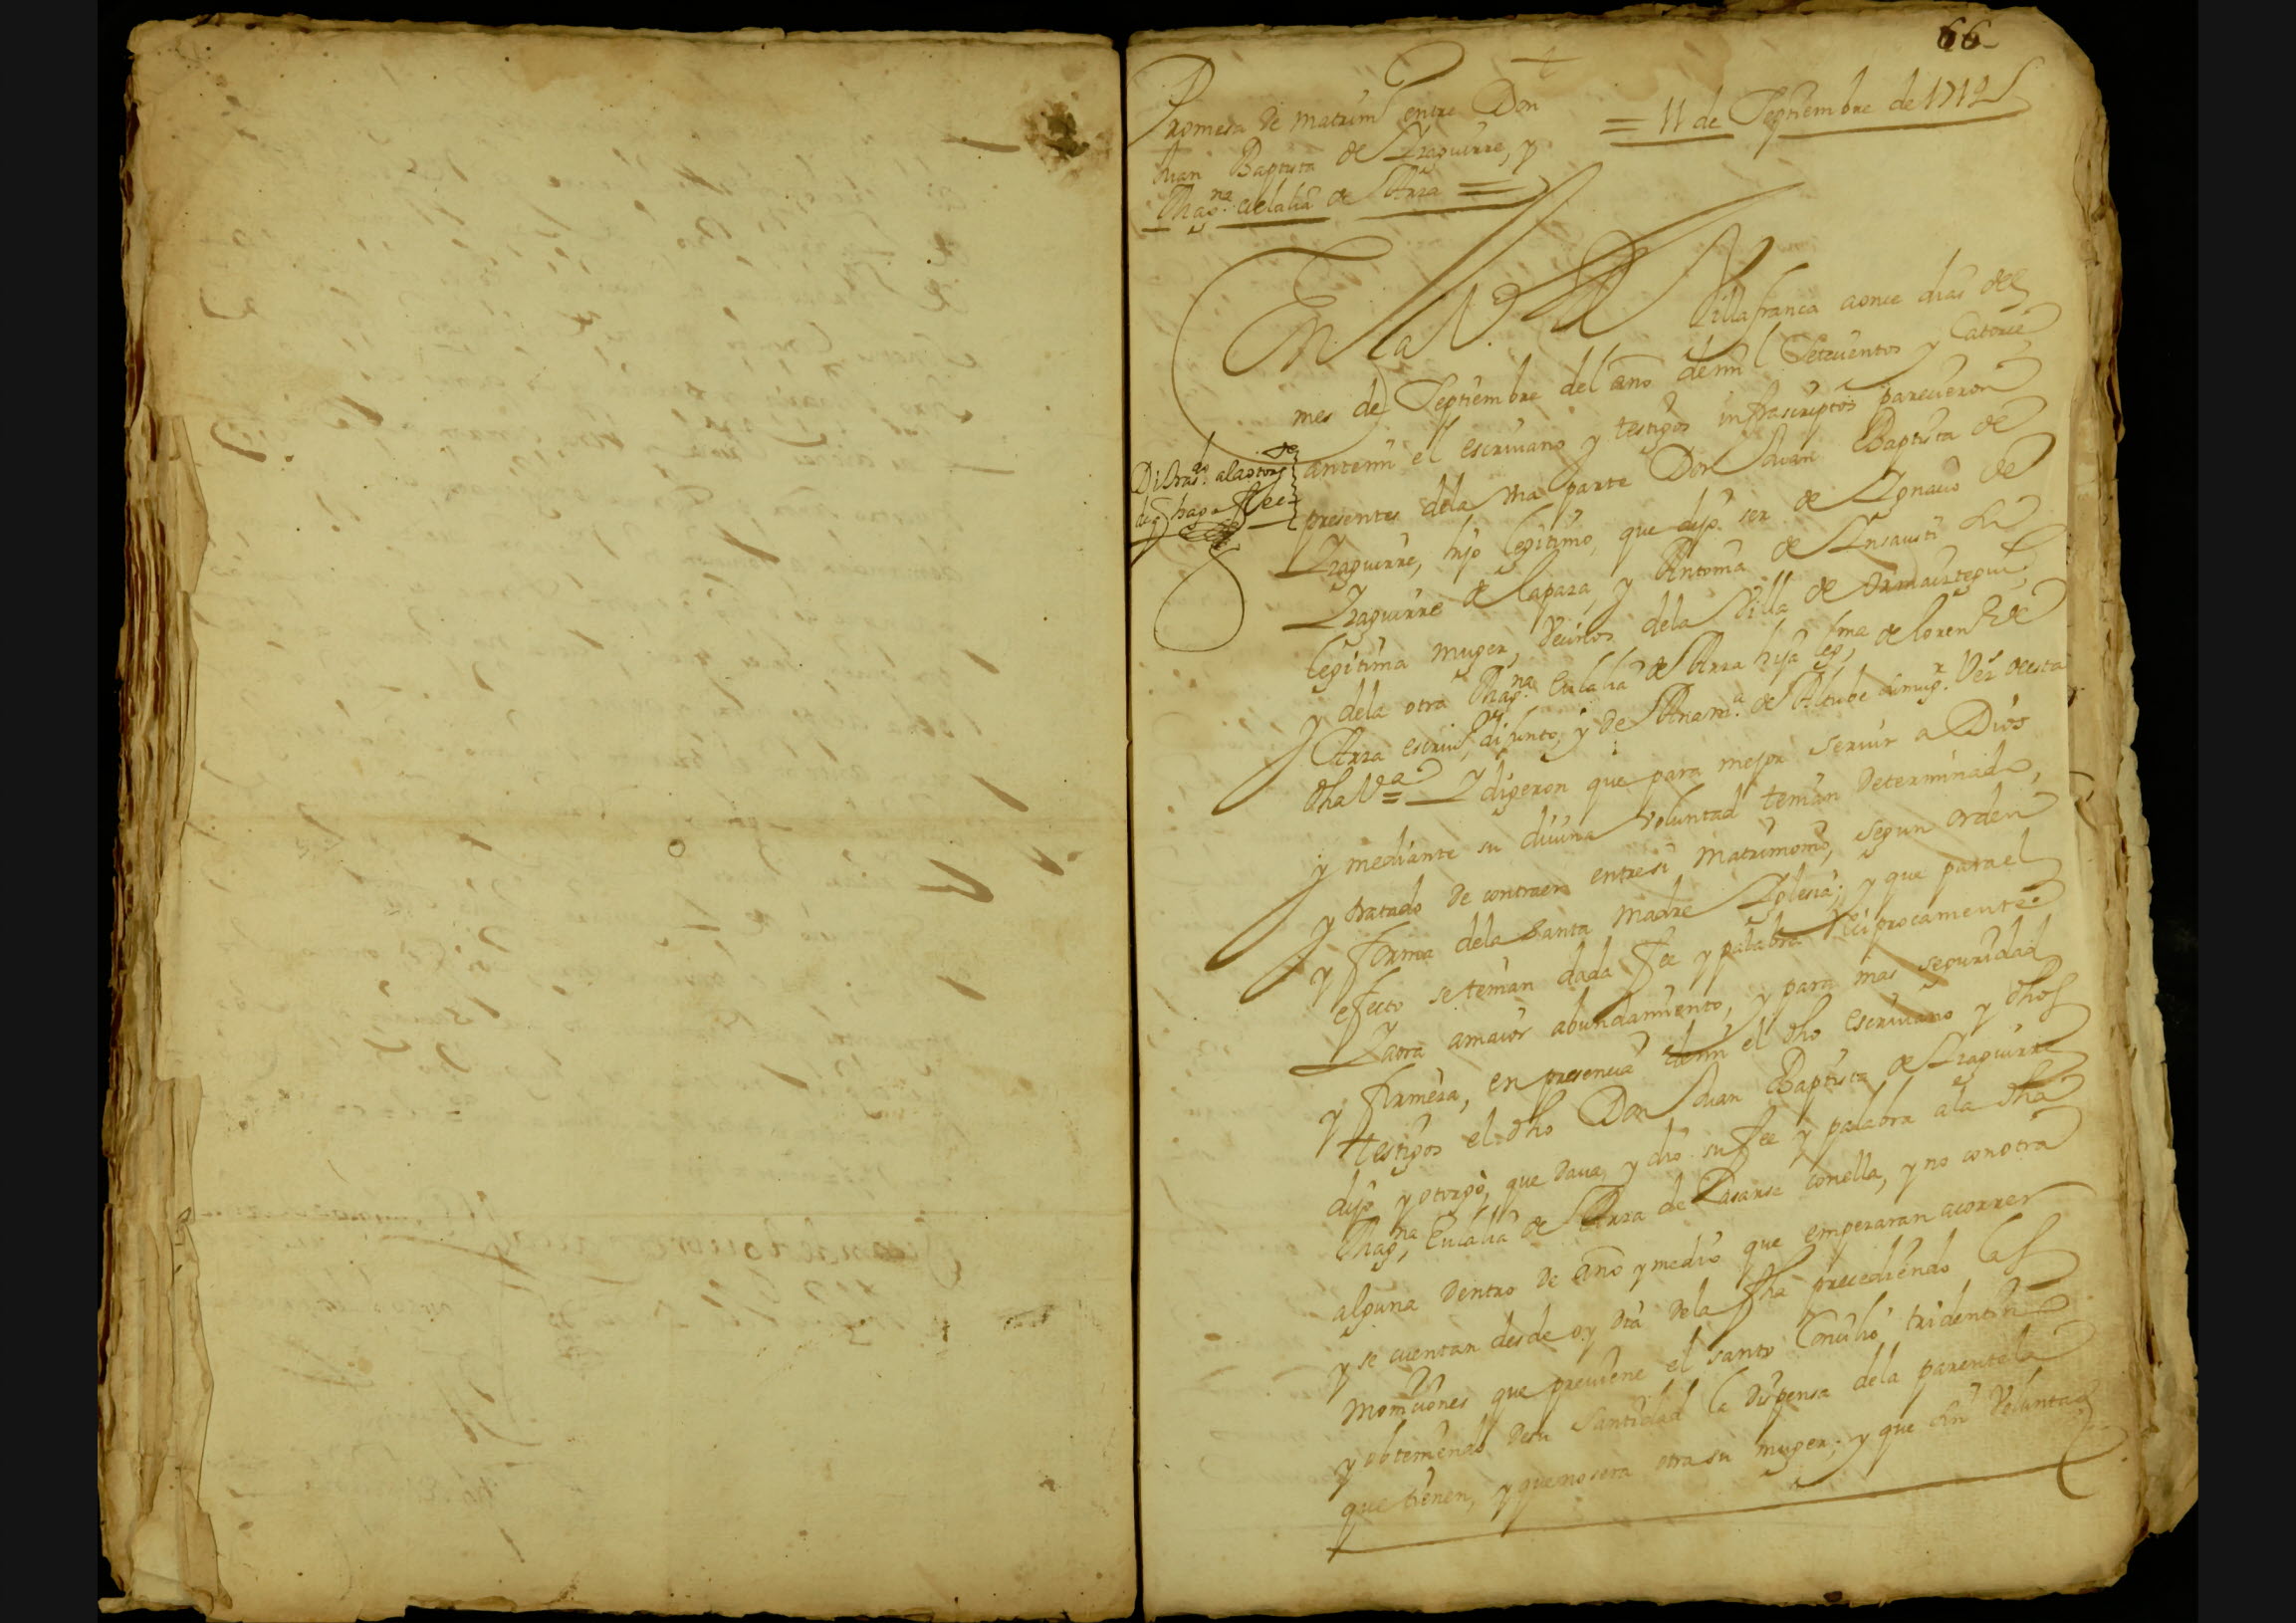 66
Promesa de matrim.l entre Don
Juan Baptista de Yzaguirre, y
Thag.na eulalia de Arza =
= 11 de Septiembre de 1714
En la V.a Villafranca a onze dias del
mes de Septiembre del año de mil Setecientos y Catorze
antemi el escriuano y testigos infrascriptos parecieron
presentes dela vna parte Don Juan Baptista de
Yzaguirre, hijo legitimo, que dijo ser de Ygnacio de
Yzaguirre de lapaza, y Antonia de Ynsausti su
legitima muger, vecinos dela villa de Ormaiztegui,
y dela otra Thag.na Eulalia de Arza hija leg.tma de lorenzo de
Arza escriu.o difunto, y de Ana m.a de Altube su mug.r vez.a de esta
dha V.a = Y digeron que para mejor seruir a Dios
y mediante su diuina voluntad tenian determinado,
y tratado de contraer entresi matrimonio, segun orden
y forma dela Santa madre Yglesia; y que para el
efecto se tenian dada fee y palabra reciprocamente
Y aora a maior abundamiento, y para mas seguridad
y firmeza, en presencia demi el dho escriuano y dhos
testigos el dho Don Juan Baptista de Yzaguirre
dijo y otorgò, que daua, y dio su fee y palabra ala dha
Thag.na Eulalia de Arza de Casarse conella, y no con otra
alguna dentro de año y medio que empezaran a correr
y se cuentan desde oy dia dela fha precediendo las
moniciones que preuiene el santo Concilio tridentino
y obteniendo de su Santidad la dispensa dela parentela
que tienen, y que no sera otra su muger; y que su voluntad